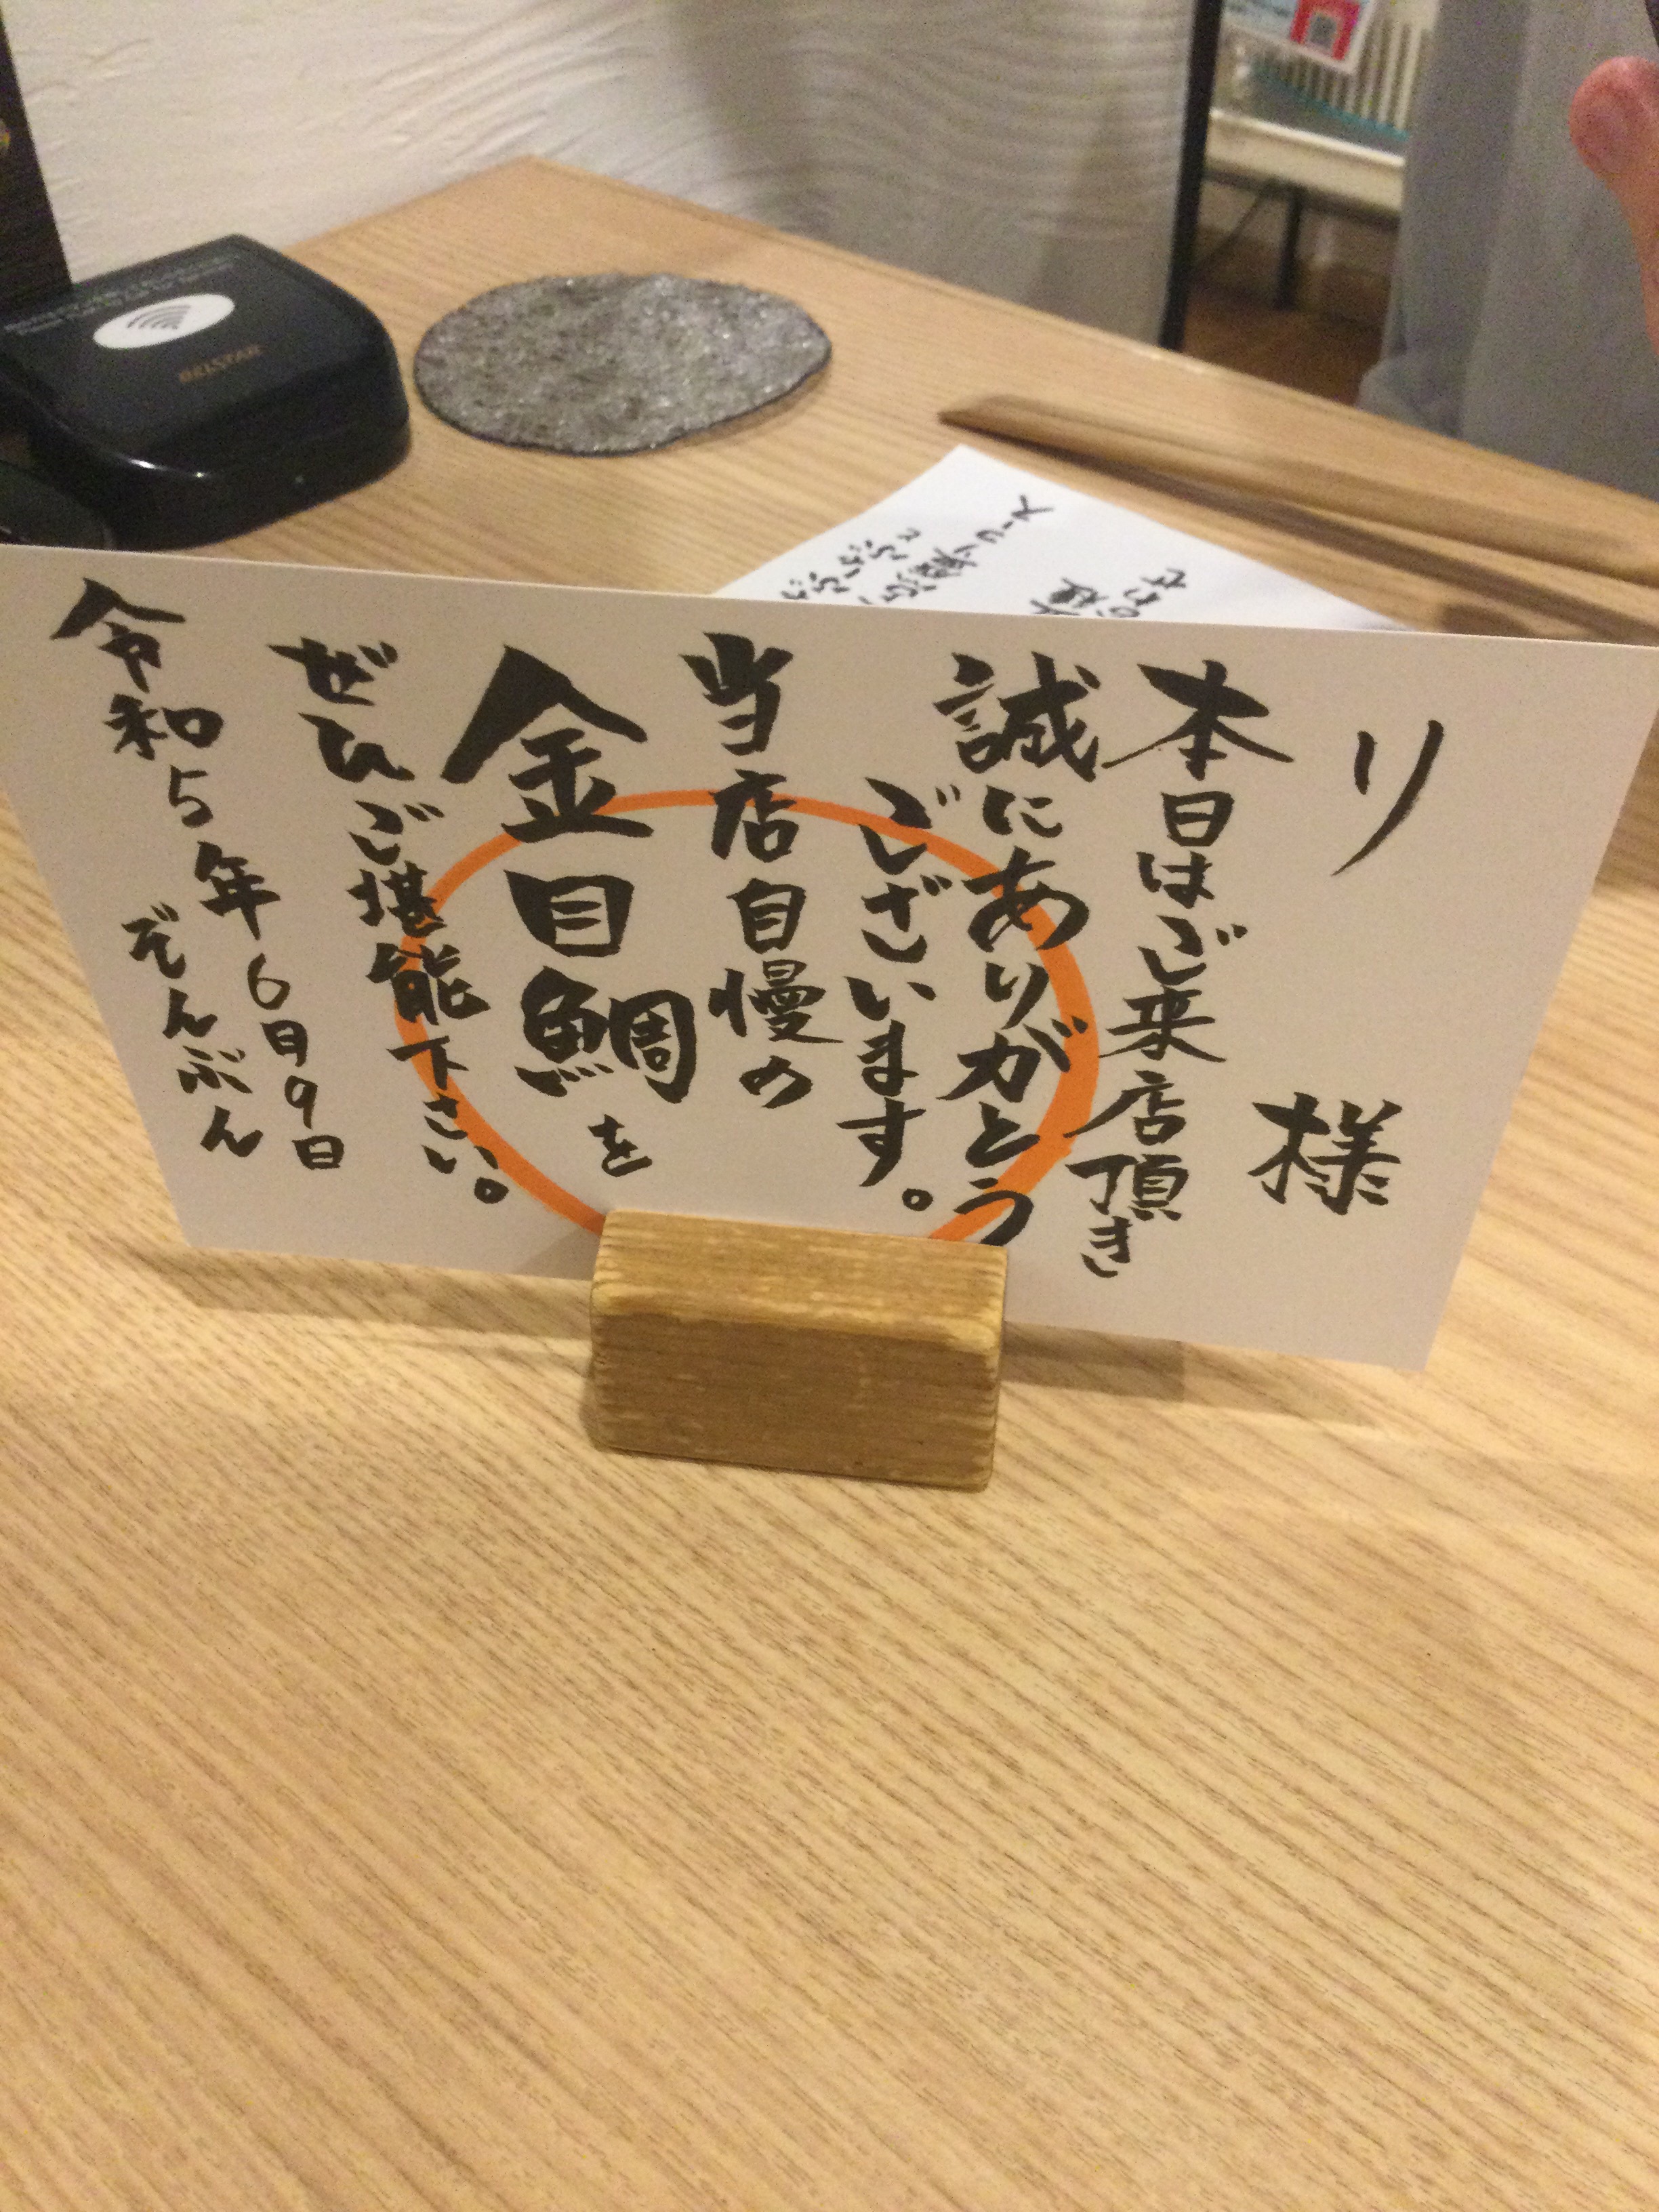 リ 様
本日はご来店頂き
誠にありがとう
ございます。
当店自慢の
金目鯛を
ぜひご堪能下さい。
令和5年6月9日
ぞんぶん
コース
BELSTAR